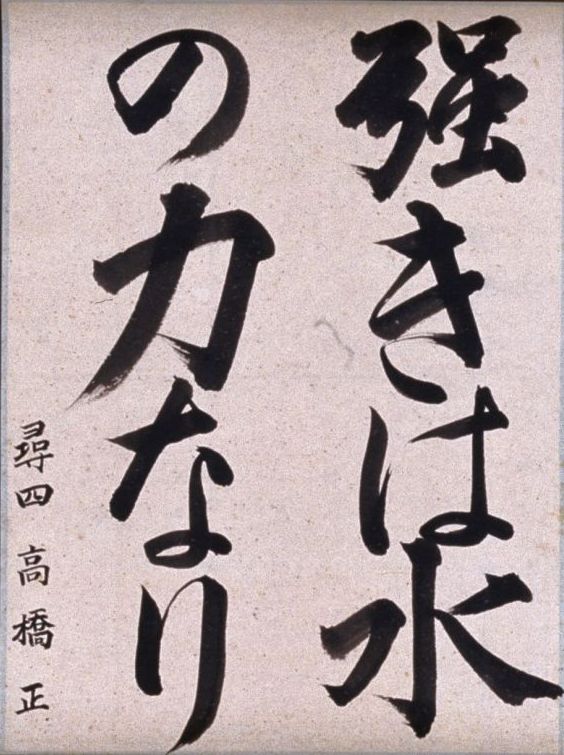 強きは水
の力なり
尋四 高橋 正